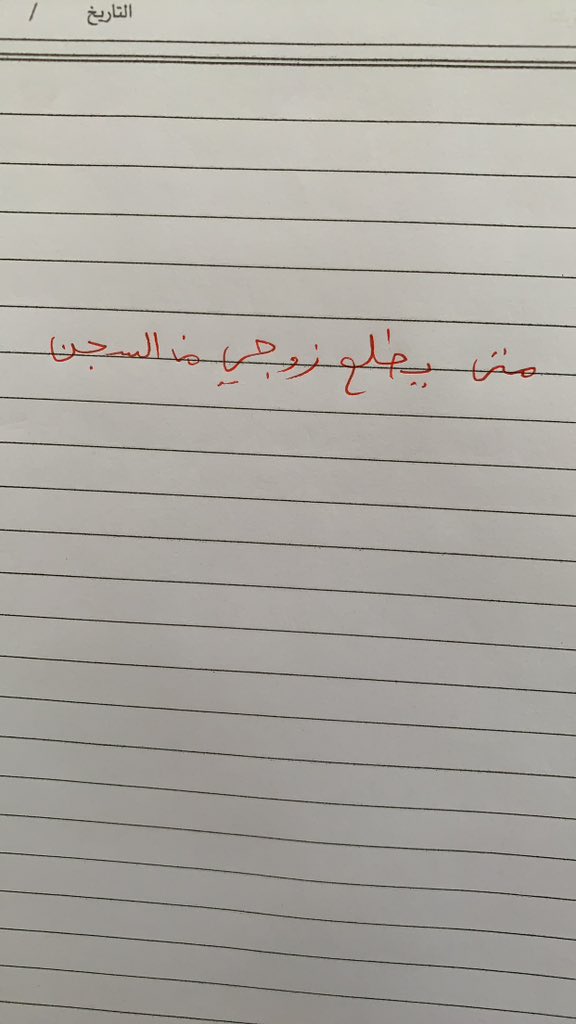 التاريخ /
متى يطلع زوجي من السجن